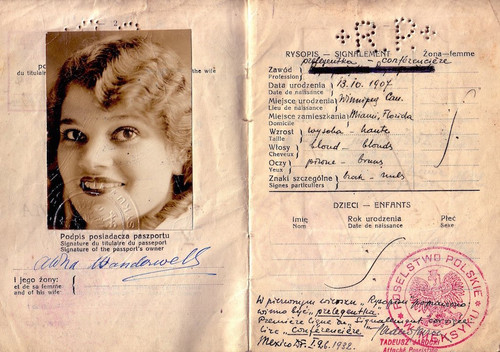 2
du titulaire
the wife
Podpis posiadacza paszportu
Signature du titulaire du passeport
Signature of the passport's owner
Aloha Wanderwell
I jego żony:
et de sa femme
and of his wife:
+R.P.+
RYSOPIS — SIGNALEMENT Żona-femme
prelegentka - conférencière
Zawód
Profession
Data urodzenia 13.10.1907
Date de naissance
Miejsce urodzenia Winnipeg Can.
Lieu de naissance
Miejsce zamieszkania Miami, Florida
Domicile
Wzrost wysoka - haute
Taille
Włosy blond - blonds
Cheveux
Oczy piwne - bruns
Yeux
Znaki szczególne brak - nuls
Signes particuliers
DZIECI — ENFANTS
Imię Rok urodzenia Płeć
Nom Date de naissance Sexe
W pierwszym wierszu "Rysopisu"
winno być "prelegentka"
Première ligne du "Signalement"
lire "Conférencière"
Mexico D.F.
1932.
POSELSTWO POLSKIE
W MEKSYKU
TADEUSZ
Attaché